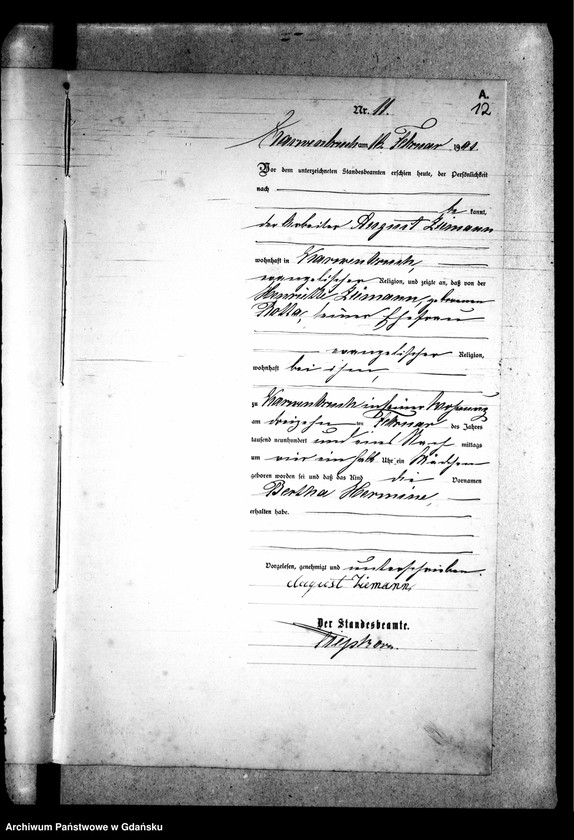 A.
Nr. 11.
12
Karwenbruch am 16. Februar 1901.
Vor dem unterzeichneten Standesbeamten erschien heute, der Persönlichkeit
nach
be kannt,
der Arbeiter August Ziemann
wohnhaft in Karwenbruch,
evangelischer Religion, und zeigte an, daß von der
Henriette Ziemann, geborenen
Rotta, seiner Ehefrau
evangelischer Religion,
wohnhaft bei ihm,
zu Karwenbruch in seiner Wohnung
am dreizehn ten Februar des Jahres
tausend neunhundert und eins Nach mittags
um vier ein halb Uhr ein Mädchen
geboren worden sei und daß das Kind die Vornamen
Bertha Hermine,
erhalten habe.
Vorgelesen, genehmigt und unterschrieben.
August Ziemann
Der Standesbeamte.
Archiwum Państwowe w Gdańsku